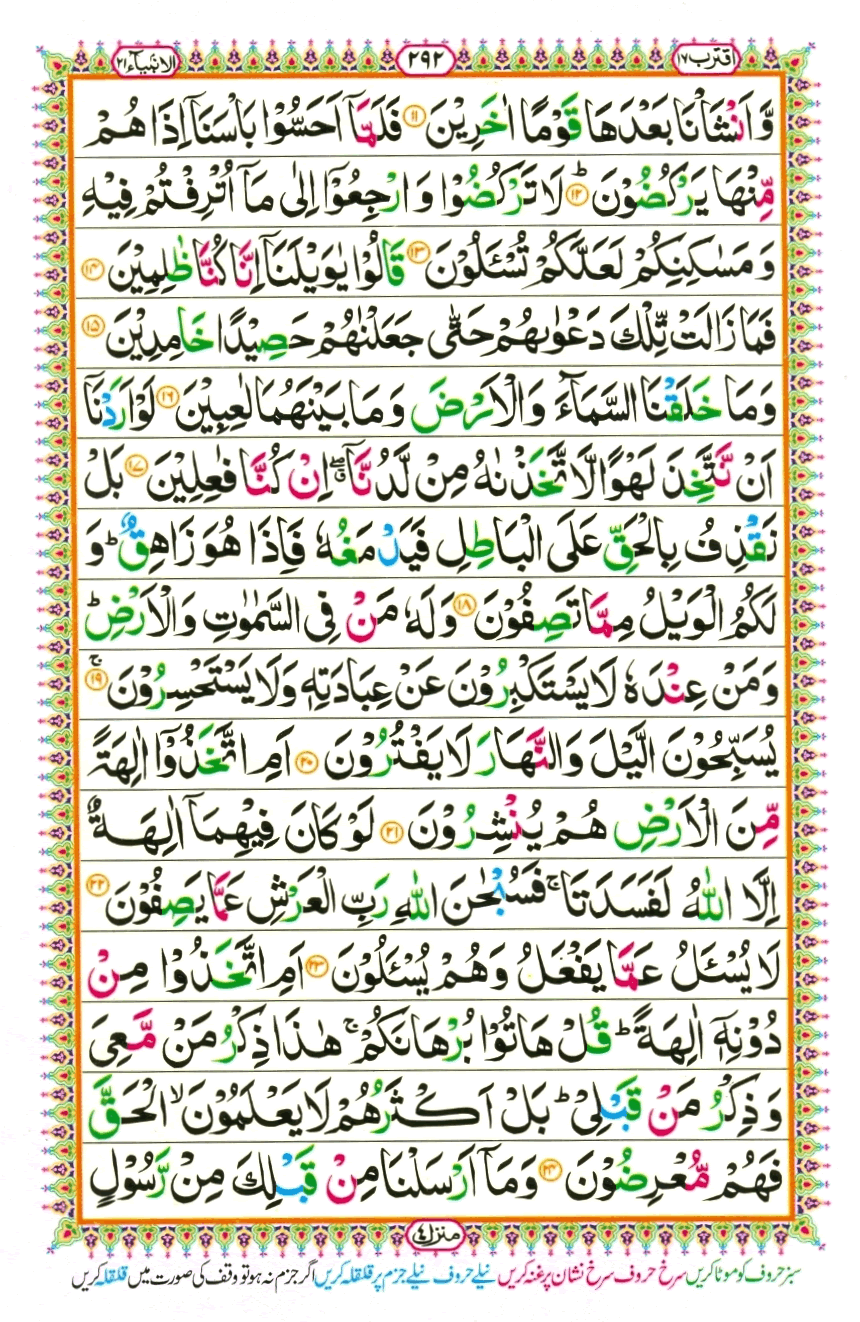 اقترب ١٧
٢٩٢
الانبیآء ٢١
وَّاَنْشَاْنَا بَعْدَهَا قَوْمًا اٰخَرِیْنَ ۝۱۱ فَلَمَّاۤ اَحَسُّوْا بَاْسَنَاۤ اِذَا هُمْ
مِّنْهَا یَرْكُضُوْنَ ؕ۝۱۲ لَا تَرْكُضُوْا وَ ارْجِعُوْۤا اِلٰی مَاۤ اُتْرِفْتُمْ فِیْهِ
وَ مَسٰكِنِكُمْ لَعَلَّكُمْ تُسْـَٔلُوْنَ ۝۱۳ قَالُوْا یٰوَیْلَنَاۤ اِنَّا كُنَّا ظٰلِمِیْنَ ۝۱۴
فَمَا زَالَتْ تِّلْكَ دَعْوٰىهُمْ حَتّٰی جَعَلْنٰهُمْ حَصِیْدًا خَامِدِیْنَ ۝۱۵
وَمَا خَلَقْنَا السَّمَآءَ وَالْاَرْضَ وَمَا بَیْنَهُمَا لٰعِبِیْنَ ۝۱۶ لَوْ اَرَدْنَاۤ
اَنْ نَّتَّخِذَ لَهْوًا لَّاتَّخَذْنٰهُ مِنْ لَّدُنَّاۤ ۖۗ اِنْ كُنَّا فٰعِلِیْنَ ۝۱۷ بَلْ
نَقْذِفُ بِالْحَقِّ عَلَی الْبَاطِلِ فَیَدْمَغُهٗ فَاِذَا هُوَ زَاهِقٌ ؕ وَ
لَكُمُ الْوَیْلُ مِمَّا تَصِفُوْنَ ۝۱۸ وَلَهٗ مَنْ فِی السَّمٰوٰتِ وَالْاَرْضِ ؕ
وَمَنْ عِنْدَهٗ لَا یَسْتَكْبِرُوْنَ عَنْ عِبَادَتِهٖ وَلَا یَسْتَحْسِرُوْنَ ۚ۝۱۹
یُسَبِّحُوْنَ الَّیْلَ وَالنَّهَارَ لَا یَفْتُرُوْنَ ۝۲۰ اَمِ اتَّخَذُوْۤا اٰلِهَةً
مِّنَ الْاَرْضِ هُمْ یُنْشِرُوْنَ ۝۲۱ لَوْ كَانَ فِیْهِمَاۤ اٰلِهَةٌ
اِلَّا اللّٰهُ لَفَسَدَتَا ۚ فَسُبْحٰنَ اللّٰهِ رَبِّ الْعَرْشِ عَمَّا یَصِفُوْنَ ۝۲۲
لَا یُسْـَٔلُ عَمَّا یَفْعَلُ وَهُمْ یُسْـَٔلُوْنَ ۝۲۳ اَمِ اتَّخَذُوْا مِنْ
دُوْنِهٖۤ اٰلِهَةً ؕ قُلْ هَاتُوْا بُرْهَانَكُمْ ۚ هٰذَا ذِكْرُ مَنْ مَّعِیَ
وَذِكْرُ مَنْ قَبْلِیْ ؕ بَلْ اَكْثَرُهُمْ لَا یَعْلَمُوْنَ ۙ الْحَقَّ
فَهُمْ مُّعْرِضُوْنَ ۝۲۴ وَمَاۤ اَرْسَلْنَا مِنْ قَبْلِكَ مِنْ رَّسُوْلٍ
منزل ٤
سبز حروف کو موٹا کریں سرخ حروف سرخ نشان پر غنہ کریں نیلے حروف نیلے جزم پر قلقلہ کریں اگر جزم نہ ہو تو وقف کی صورت میں قلقلہ کریں